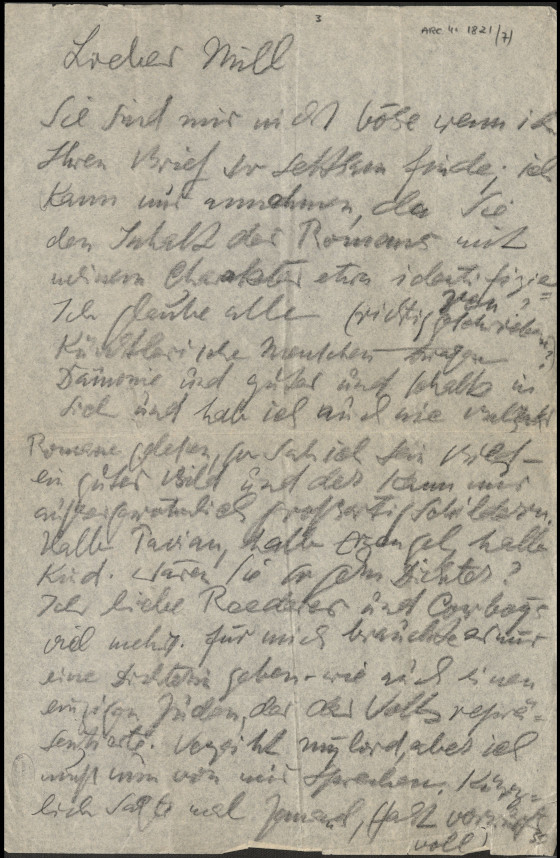 3
ARC 4. 1821/7)
Lieber Mill
Sie sind mir nicht böse wenn ich
Ihren Brief so seltsam finde; ich
kann nur annehmen, das Sie
den Inhalt des Romans mit
meinem Charakter etwa identifizie=
ren?
Ich glaube alle (richtig geschrieben?)
Künstlerische Menschen tragen
Dämonie und gutes und schlecht in
sich und hab ich auch nie
Romane gelesen, so sah ich sein Bild –
ein gutes Bild und der kann nur
außergewöhnlich großartig schildern.
Halb Pavian, halb Erzengel, halb
Kind. wären Sie so gern Dichter?
Ich liebe Roedeler und Cowboys
viel mehr. für mich brauchte es nur
eine Dichterin geben – wie auch einen
einzigen Juden, der das Volk reprä=
sentierte. Verzeiht mylord, aber ich
muß nun von mir sprechen. Kürz=
lich sagte mal Jemand, (fast
voll)